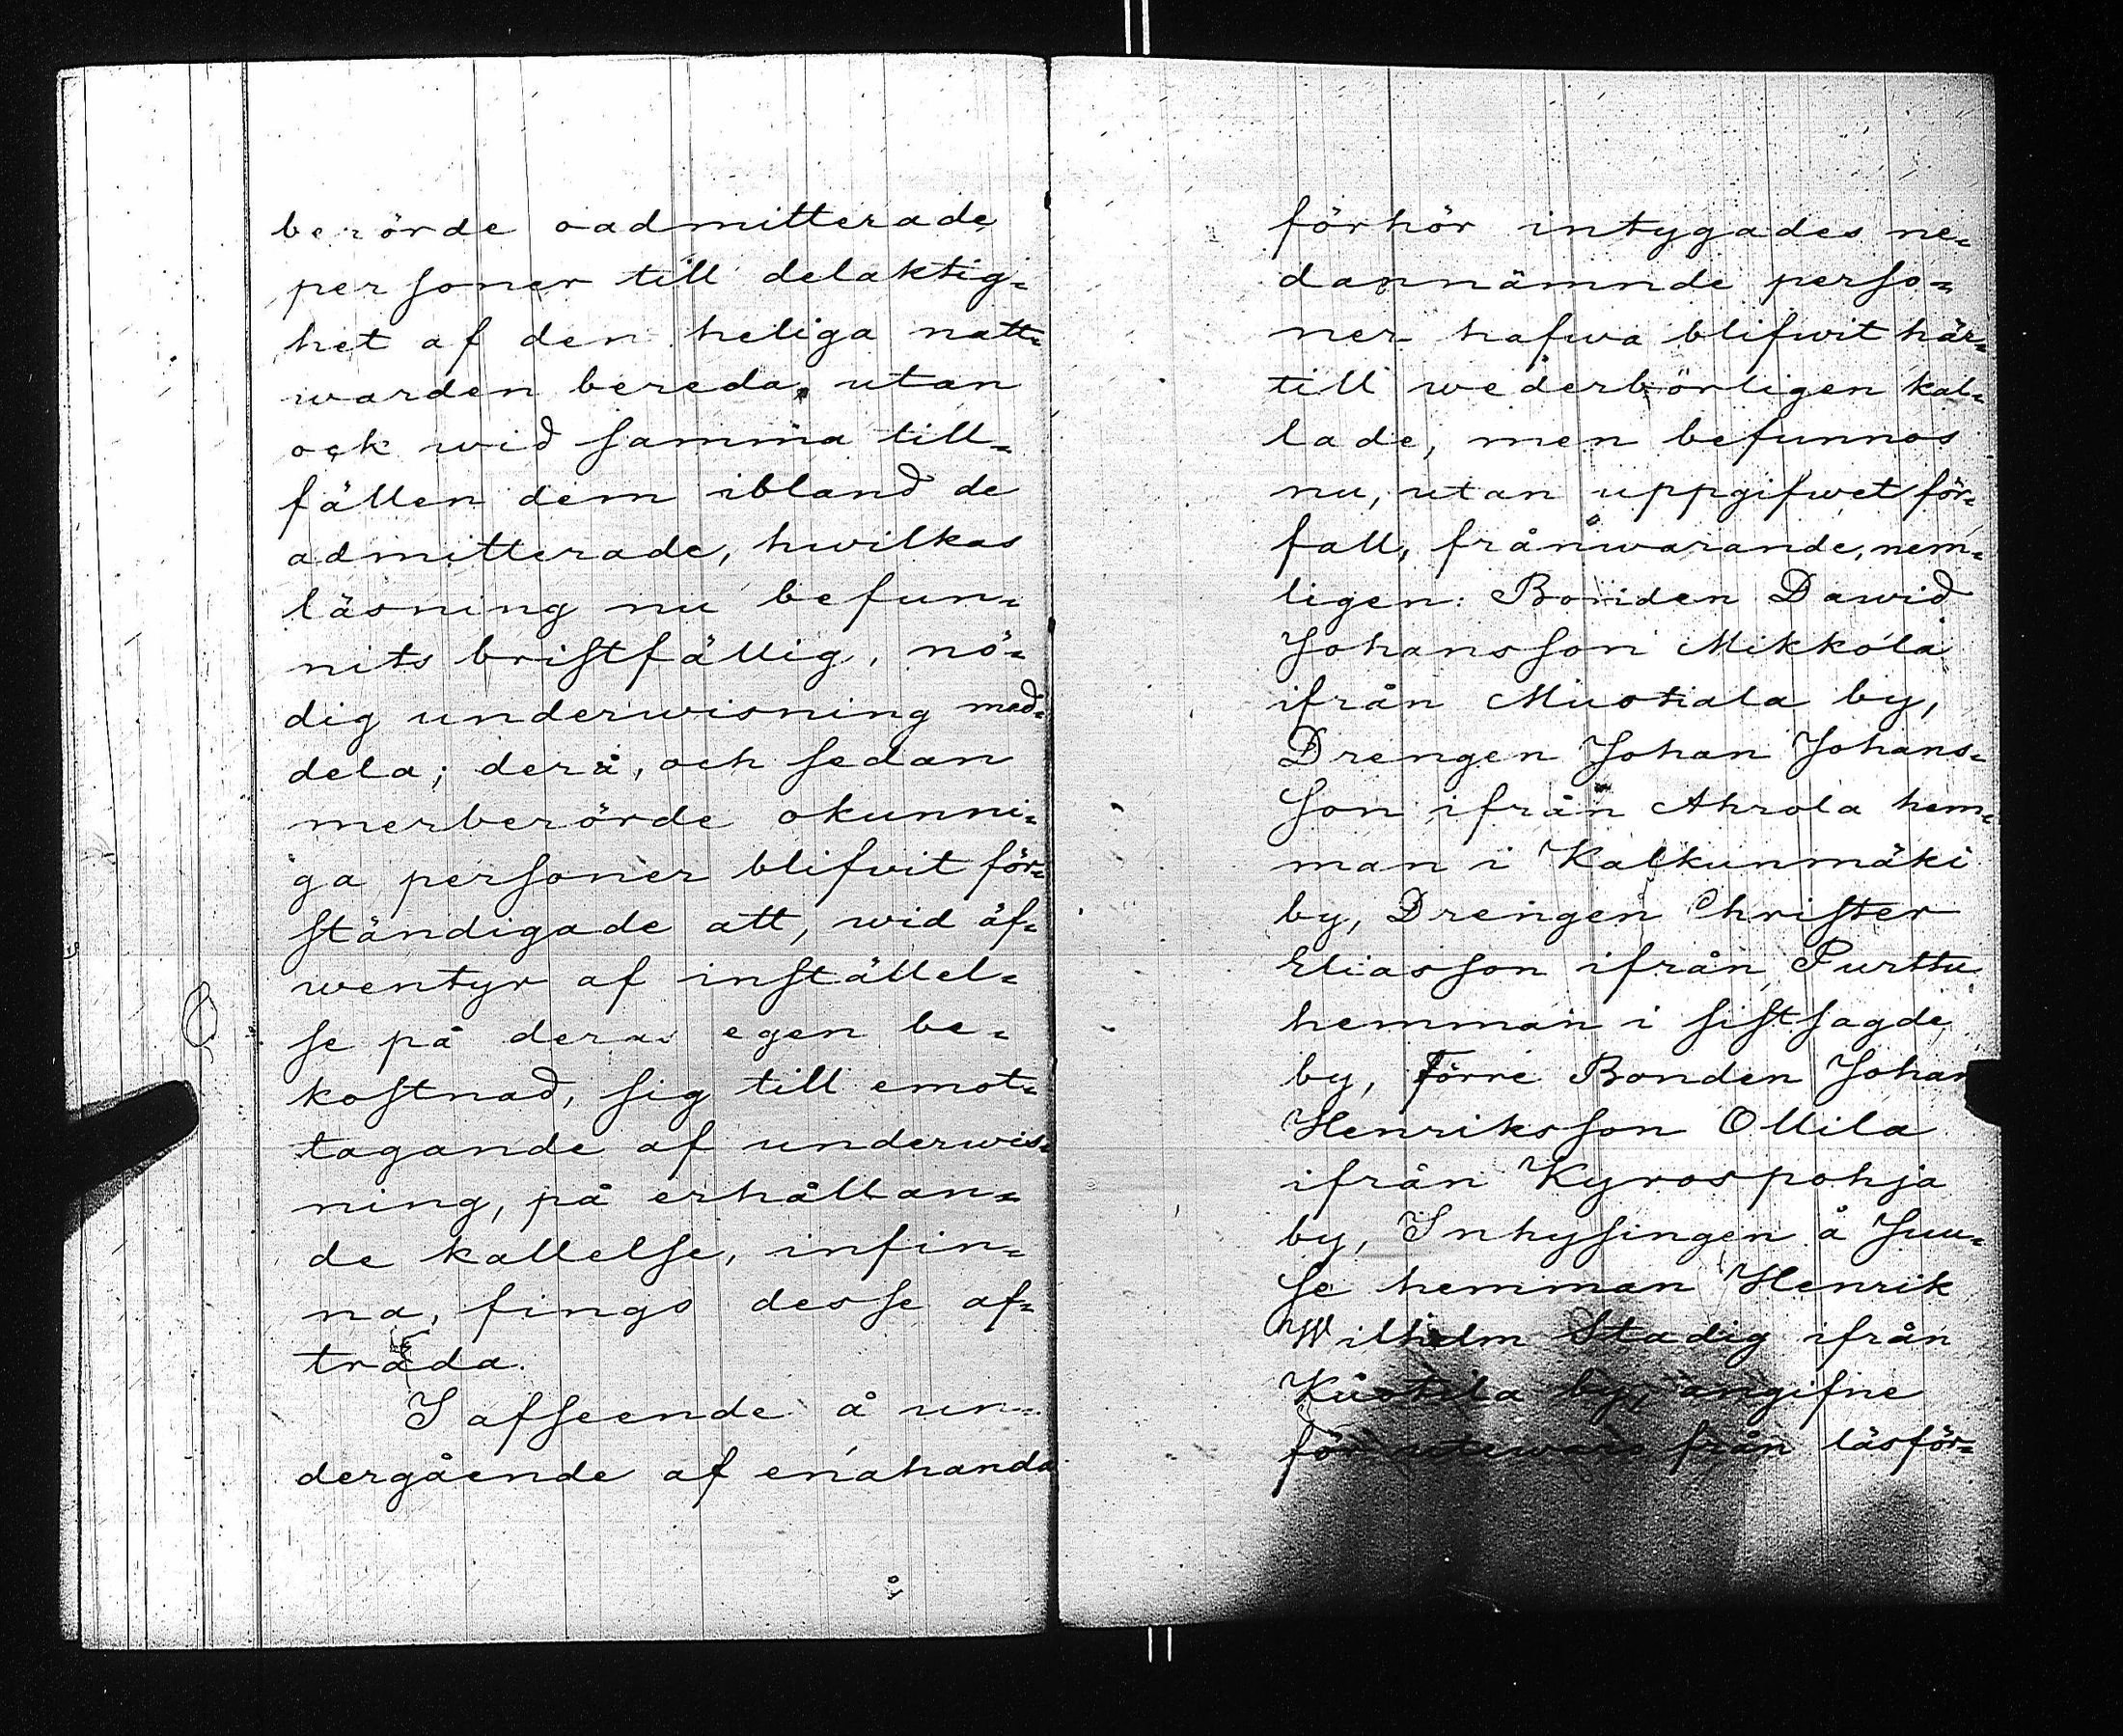 berörde oadmitterade
personer till delaktig=
het af den heliga natt=
warden bereda, utan
ock wid samma till=
fällen dem ibland de
admitterade, hwilkas
läsning nu befun=
nits bristfällig, nö=
dig underwisning med=
dela; derå, och sedan
merberörde okunni=
ga personer blifvit för=
ständigade att, wid äf=
wentyr af inställel=
se på deras egen be=
kostnad, sig till emot=
tagande af underwis=
ning, på erhållan=
de kallelse, infin=
na, fings desse af=
träda.
I afseende å un=
dergående af enahanda
förhör intygades ne=
dannämnde perso=
ner hafwa blifwit här=
till wederbörligen kal=
lade, men befunnos
nu, utan uppgifwet för=
fall, frånwarande, nem=
ligen: Bonden Dawid
Johansson Mikkola
ifrån Mustiala by,
Drengen Johan Johans=
son ifrån Ahrola hem=
man i Kalkunmäki
by, Drengen Christer
Eliasson ifrån Purttu
hemman i sistsagde
by, Förre Bonden Johan
Henriksson Ollila
ifrån Kyrospohja
by, Inhysingen å Juu=
se hemman Henrik
Wilhelm Stadig ifrån
Kustila by, angifne
för utewaro från läsför=